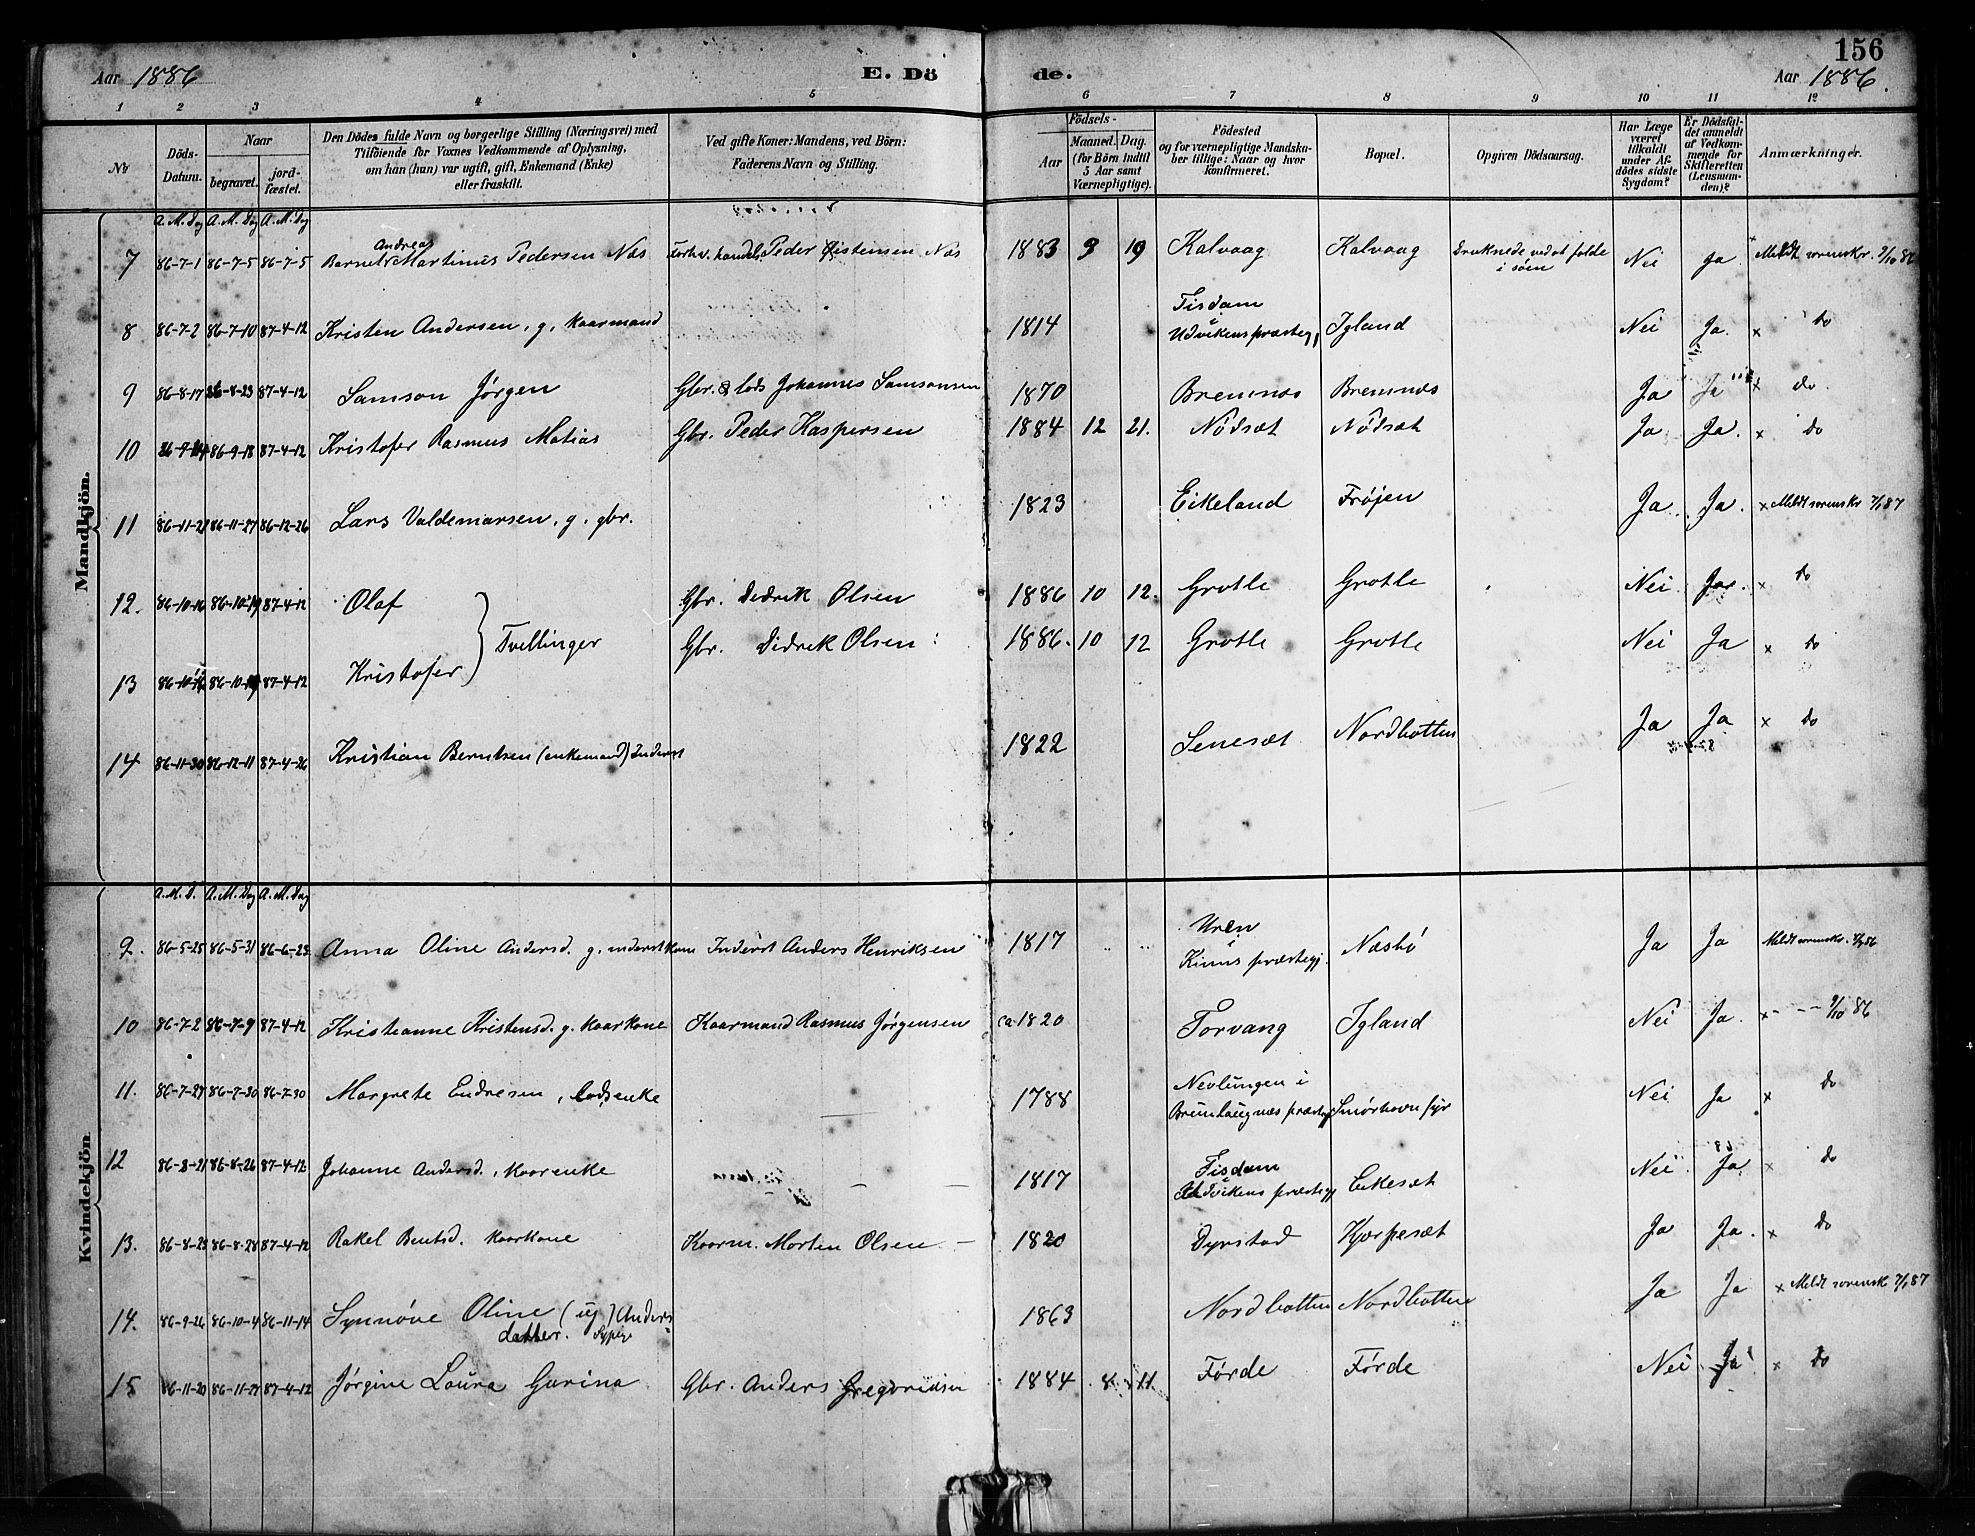 156
Aar 1886 E. Dö de. Aar 1886.
1 2 3 4 5 6 7 8 9 10 11 12
No Döds-Datum. Naar begravet. jord-fæstet. Den Dödes fulde Navn og borgerlige Stilling (Næringsvei) med Tilföiende for Voxnes Vedkommende af Oplysning, om han (hun) var ugift, gift, Enkemand (Enke) eller fraskilt. Ved gifte Koner: Mandens, ved Börn: Faderens Navn og Stilling. Födsels- Aar Maaned. Dag. (for Börn indtil 5 Aar samt Værnepligtige). Födested og for værnepligtige Mandskaber tillige: Naar og hvor konfirmeret. Bopæl. Opgiven Dödsaarsag. Har Læge været tilkaldt under Afdödes sidste Sygdom? Er Dödsfaldet anmeldt af Vedkommende for Skifteretten (Lensmanden)? Anmærkninger.
Mandkjön.
A. M. Dag A. M. Dag A. M. Dag
Andreas
7 86-7-1 86-7-5 86-7-5 Barnet Martinus Pedersen Nas forhv. handels. Peder Nas 1883 9 19 Kalvaag Kalvaag Druknede ved at falde i søen Nei Ja Meldt sorenskr. 9/10 86
8 86-7-2 86-7-10 87-4-12 Kristen Andersen, g, kaarmand 1814 Tisdam Udvikens præstegj, Igland Nei Ja. x do
9 86-8-17 86-8-23 87-4-12 Samson Jørgen Gbr. & lods Johannes Samsonsen 1870 Bremnæs Bremnæs Ja Ja x do.
10 86-9-14 86-9-18 87-4-12 Kristofer Rasmus Matias Gbr. Peder Kaspersen 1884 12 21. Nødsæt Nødsæt Ja Ja. x do
11 86-11-21 86-11-27 86-12-26 Lars Valdemarsen, g, gbr. 1823 Eikeland Frøjen Ja. Ja. x Meldt sorenskr 7/1 87
12. 86-10-16 86-10-19 87-4-12 Olaf Gbr. Didrik Olsen 1886 10 12. Grotle Grotle Nei Ja. x do
Tvillinger
13 86-10-16 86-10-19 87-4-12 Kristofer Gbr. Didrik Olsen 1886. 10 12 Grotle Grotle Nei Ja x do
14 86-11-30 86-12-11 87-4-26 Kristian Berntsen (enkemand) Inderst 1822 Senesæt Nordbotten Ja Ja x do
Kvindekjön.
A. M. D. A. M. Dag A. M. Dag
9. 86-5-25 86-5-31 86-6-23 Anna Oline Andersd. g, inderstkone Inderst Anders Henriksen 1817 Uren Kinns præstegj. Næsbø Ja Ja Meldt sorenskr.
10 86-7-2 86-7-9 87-4-12 Kristianne Kristensd. g. kaarkone Kaarmand Rasmus Jørgensen ca 1820 Torvang Igland Nei Ja. x - - - 9/10 86
11. 86-7-27 86-7-30 86-7-30 Margrete Endresen, lodsenke 1788 Nevlungen i Brunlaugnæs præstegj Smørhavn fyr Nei Ja x do
12 86-8-21 86-8-26 87-4-12 Johanne Andersd., kaarenke 1817 Tisdam Udvikens præstegj Eikesæt Nei Ja x do
13. 86-8-23 86-8-28 87-4-12 Rakel Bentsd. kaarkone Kaarm. Morten Olsen 1820 Dyrstad Hjerpesæt Ja Ja. x do
14. 86-9-26 86-10-4 86-11-14 Synnøve Oline (ug) Anders datter. Sypige 1863 Nordbotten Nordbotten Ja Ja x Meldt sorensk 7/1 87
15 86-11-20 86-11-27 87-4-12 Jørgine Laura Gurina Gbr. Anders Gregoriusen 1884 8 11 Førde Førde Nei Ja x do